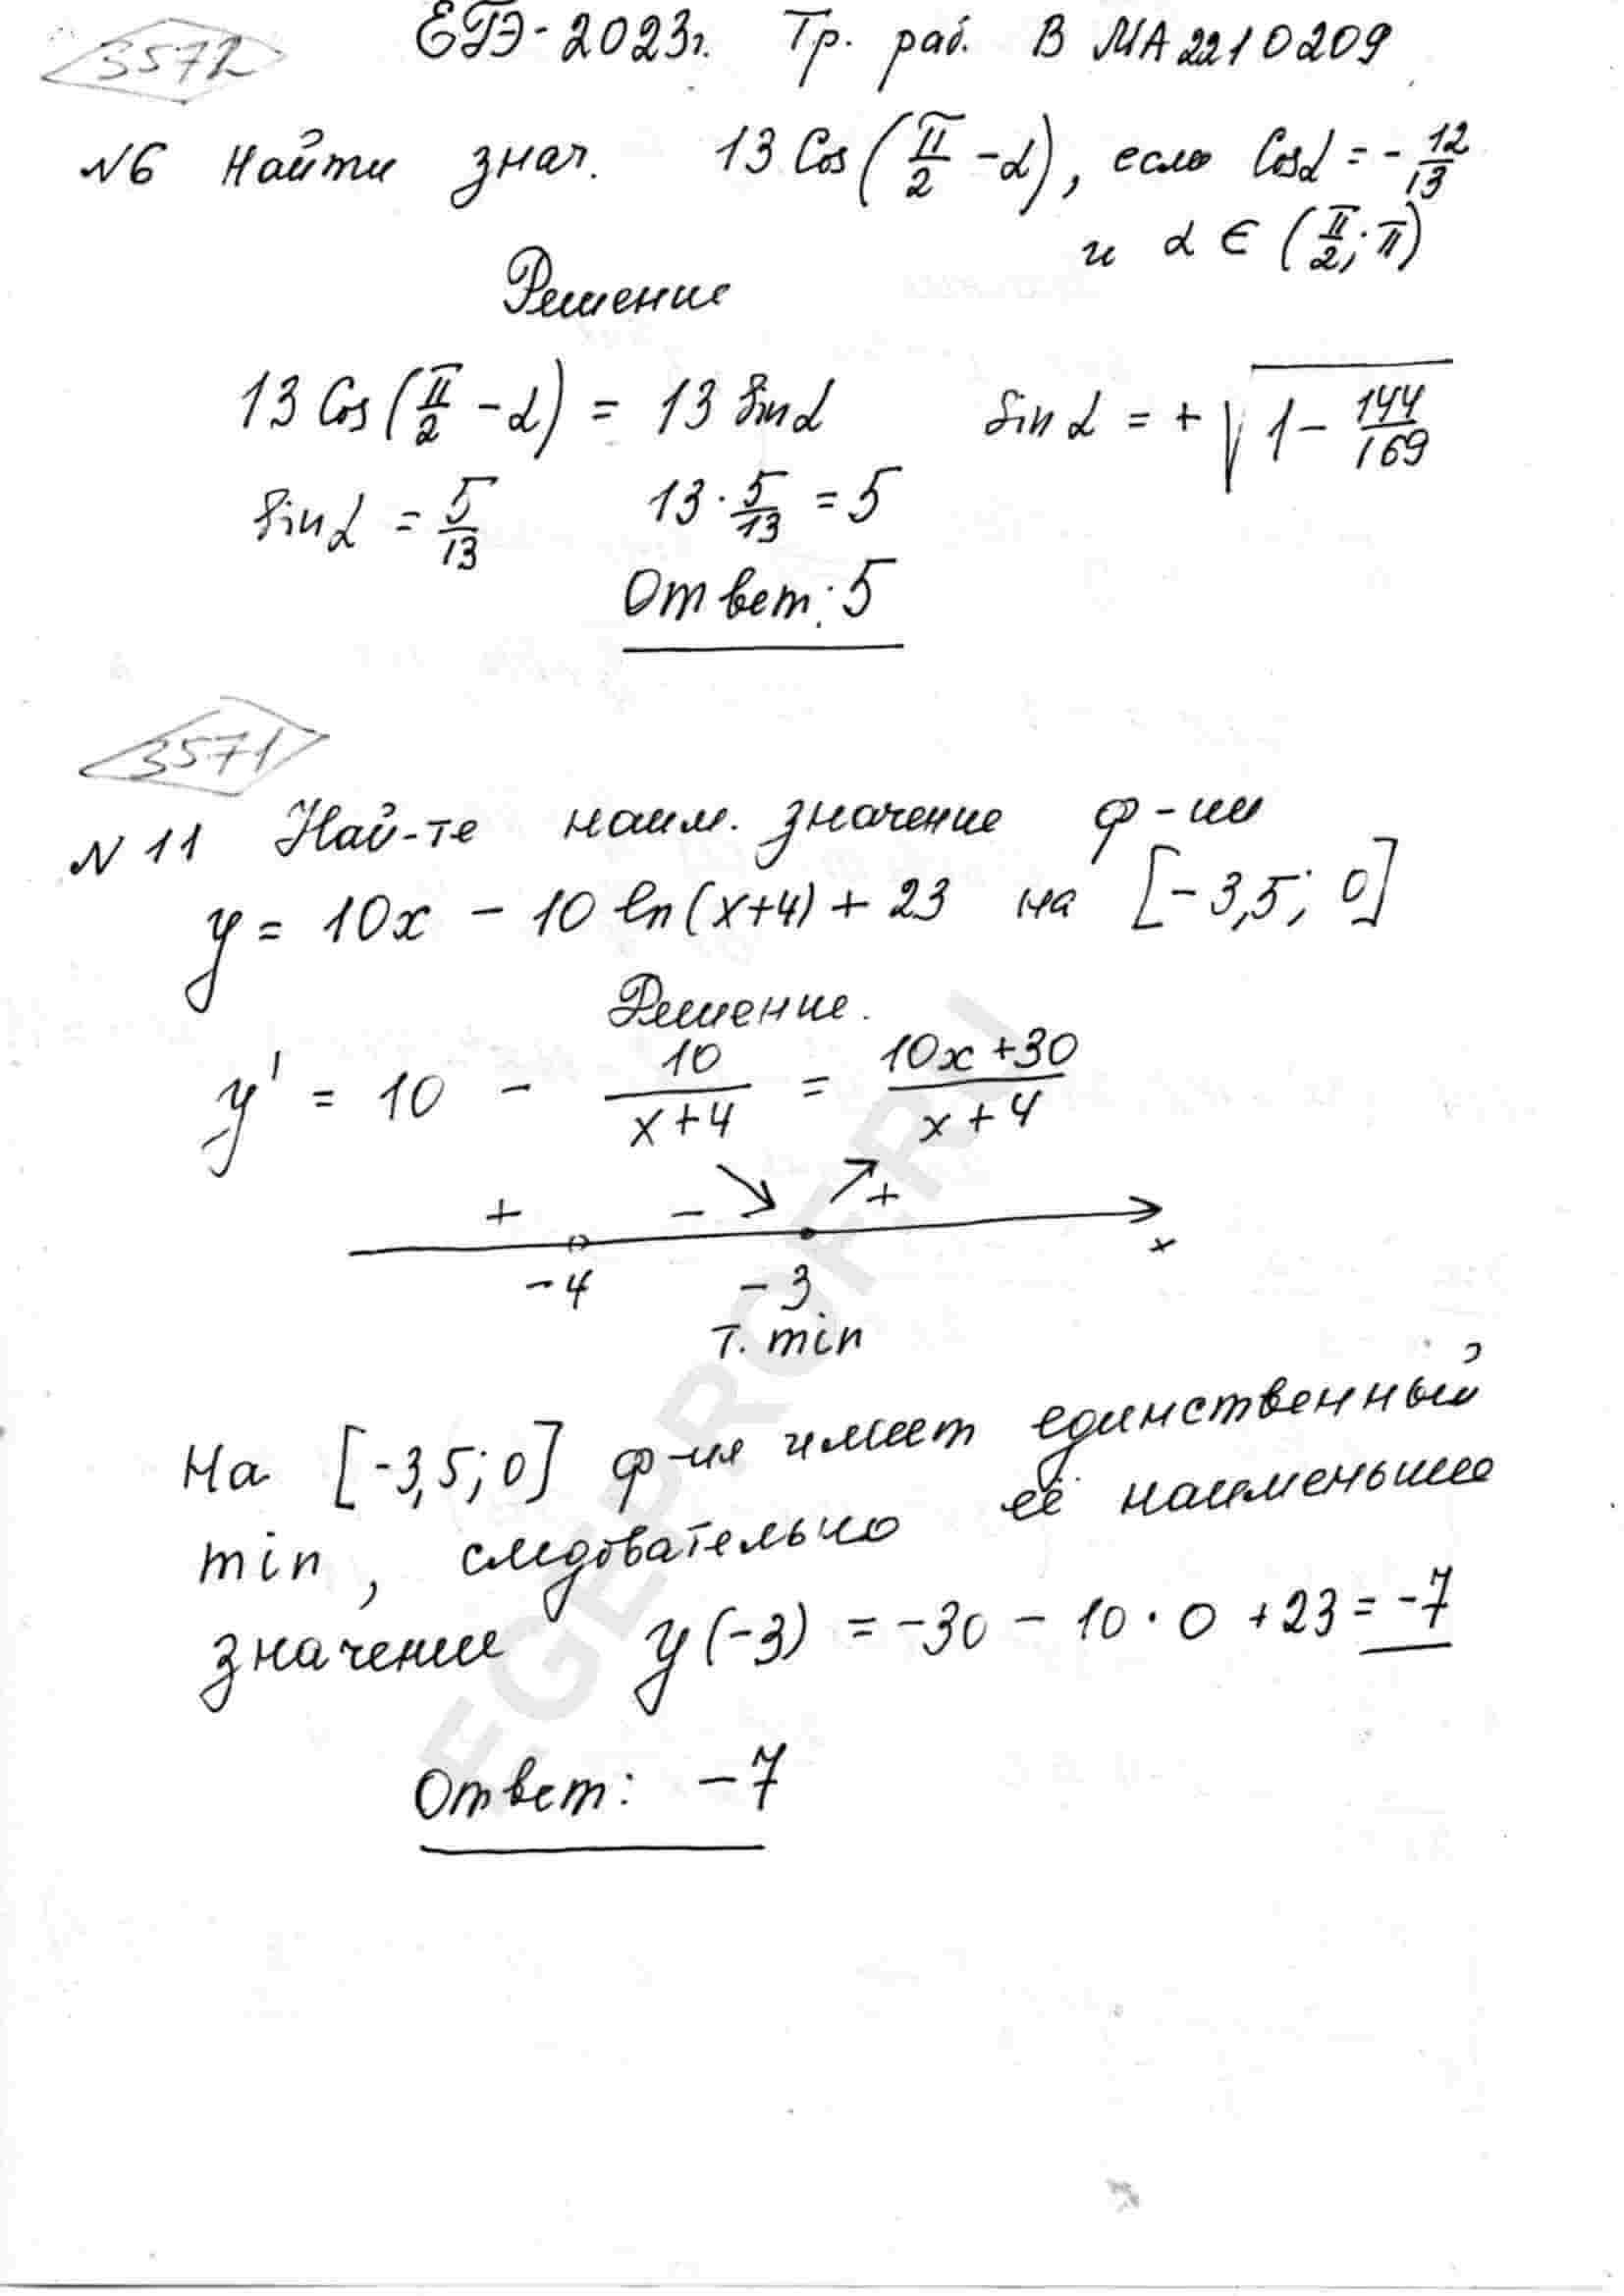 3572
ЕГЭ-2023г. Тр. раб. В МА2210209
№6 Найти знач. 13 Cos(π/2 - α), если Cosα = - 12/13
и α ∈ (π/2; π)
Решение
13 Cos(π/2 - α) = 13 Sinα Sin α = + √(1 - 144/169)
Sinα = 5/13 13 · 5/13 = 5
Ответ: 5
3571
№ 11 Най-те наим. значение ф-ии
y = 10x - 10 ln(x+4) + 23 на [-3,5; 0]
Решение.
y' = 10 - 10/(x+4) = (10x+30)/(x+4)
+ - +
-4 -3 x
т. min
На [-3,5; 0] ф-ия имеет единственный
min, следовательно её наименьшее
значение y(-3) = -30 - 10 · 0 + 23 = -7
Ответ: -7
EGEPROF.RU